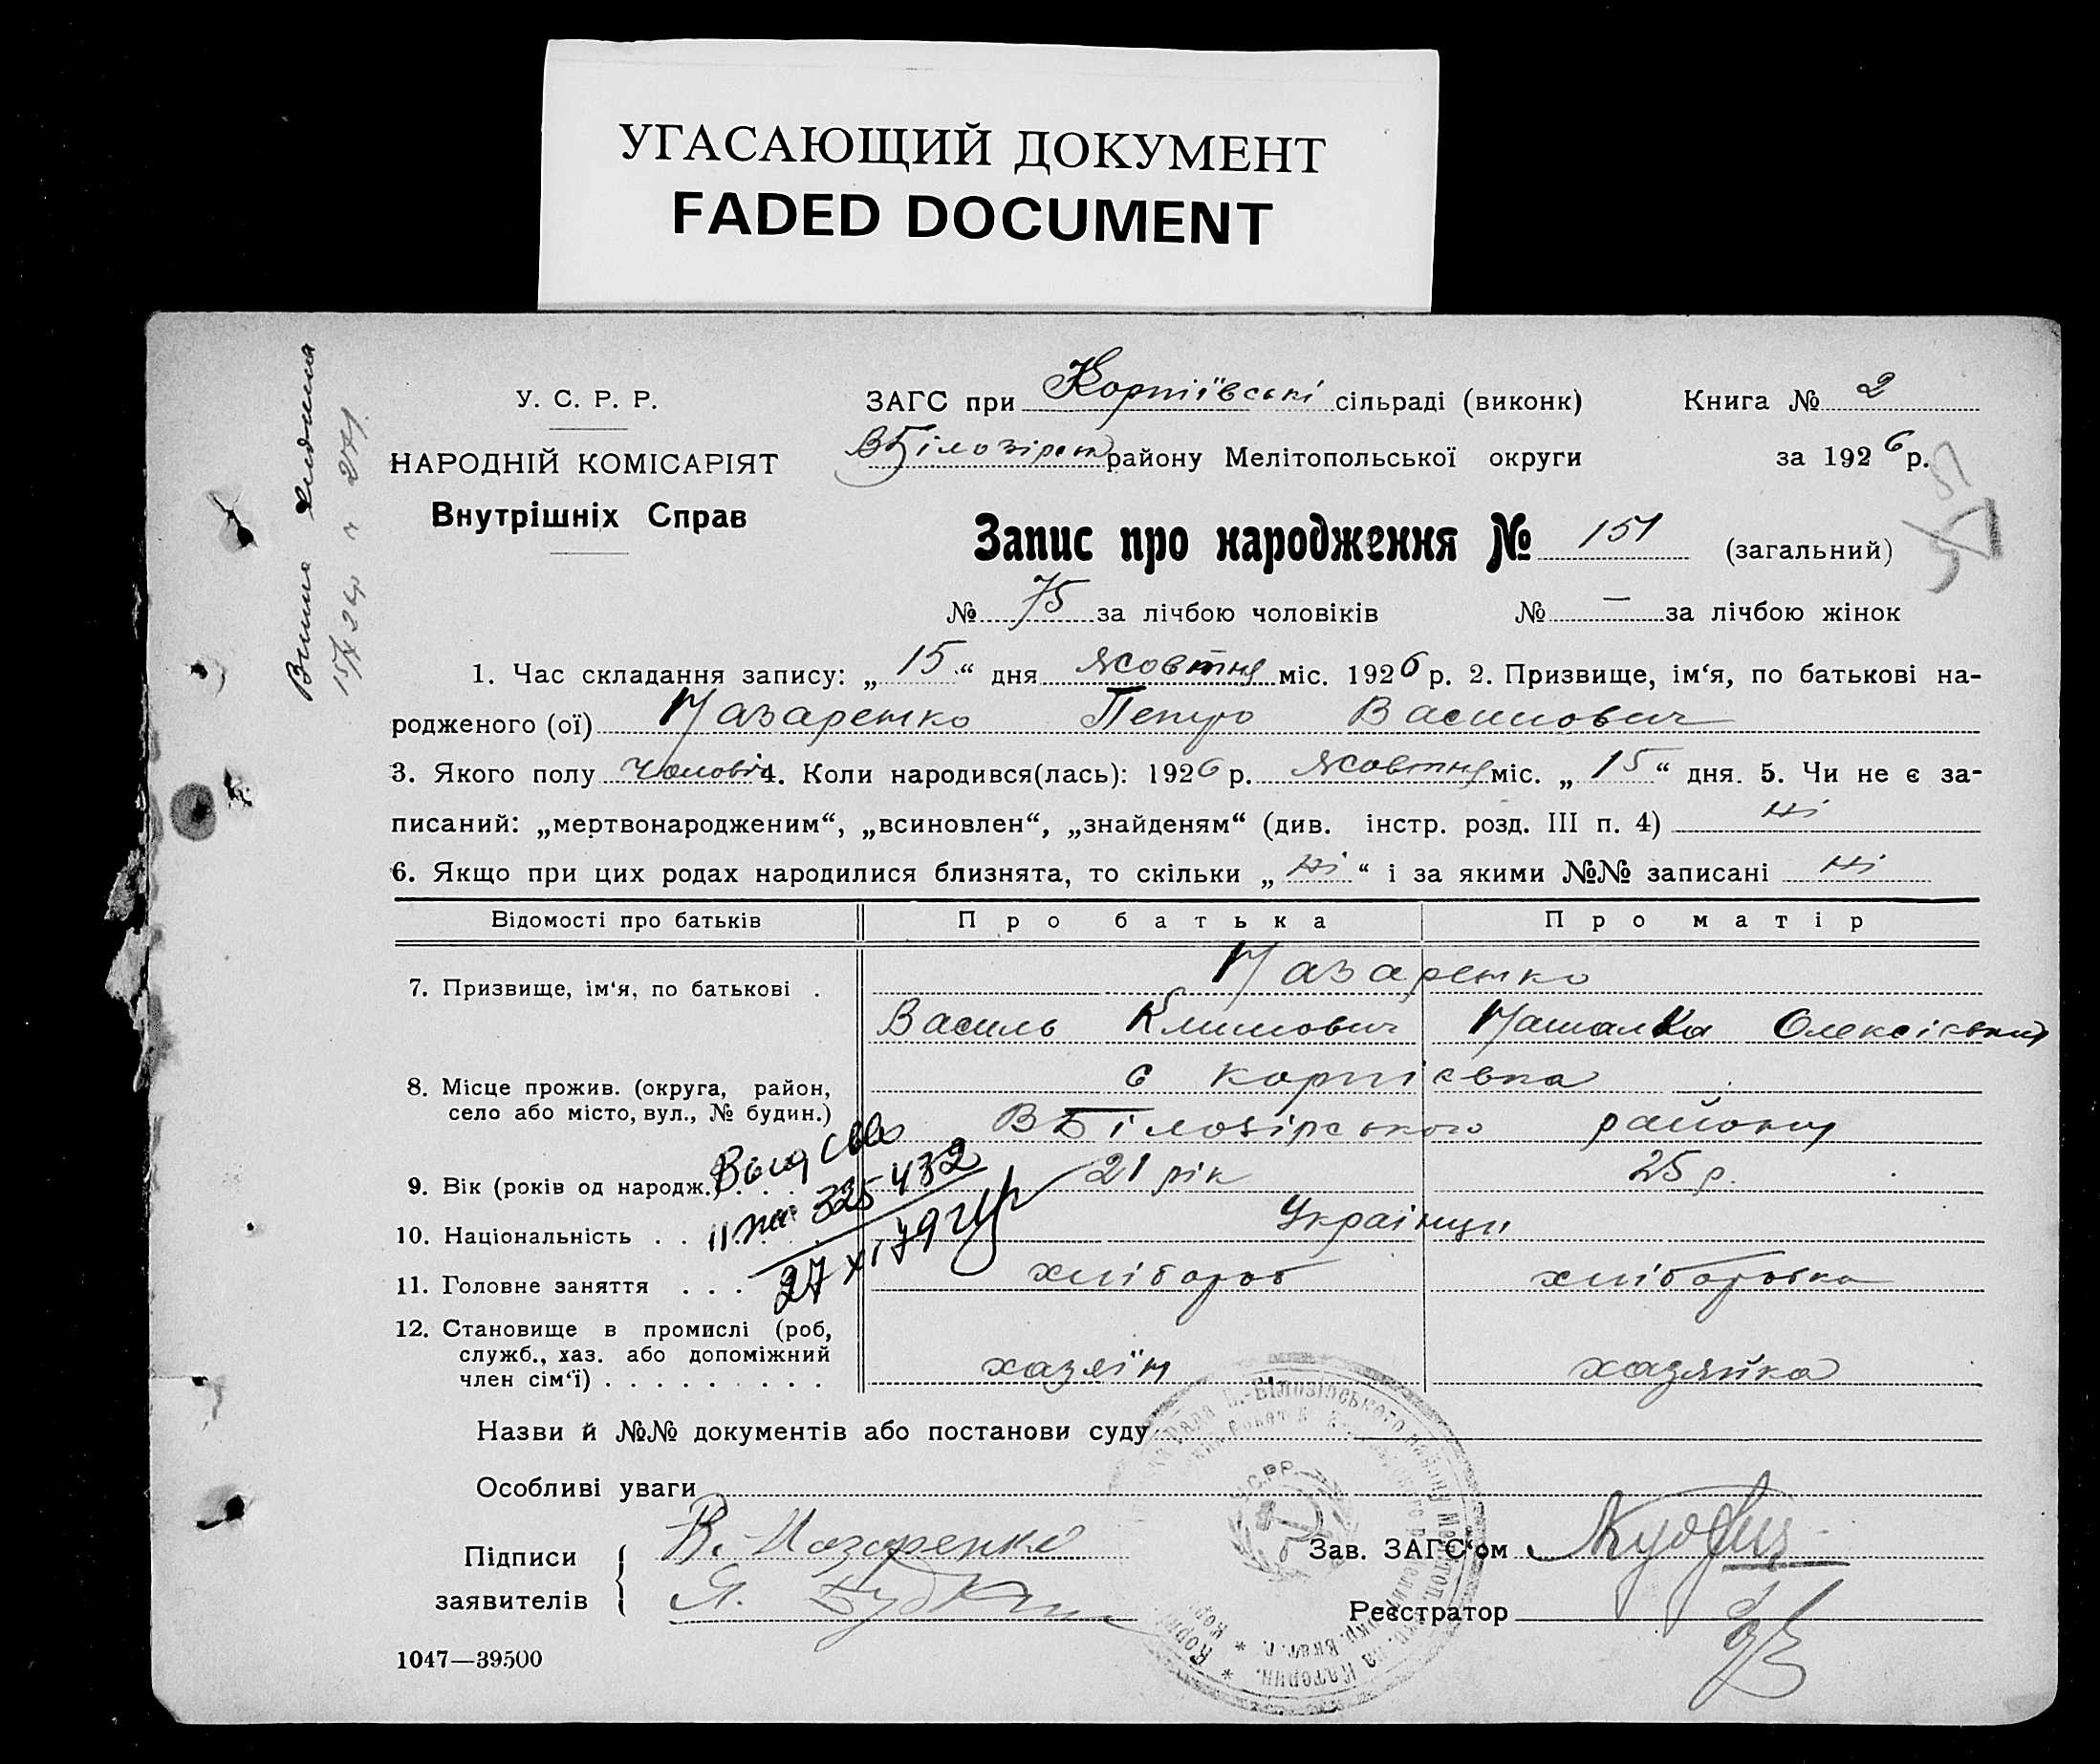 УГАСАЮЩИЙ ДОКУМЕНТ
FADED DOCUMENT
У. С. Р. Р.
НАРОДНІЙ КОМІСАРІЯТ
Внутрішніх Справ
ЗАГС при Корніївські сільраді (виконк) Книга № 2
ВБілозірськ району Мелітопольської округи за 1926 р.
Запис про народження № 151 (загальний)
№ 75 за лічбою чоловіків № — за лічбою жінок
1. Час складання запису: „15“ дня Жовтня міс. 1926 р. 2. Призвище, ім‘я, по батькові на-
родженого (ої) Назаренко Петро Васильович
3. Якого полу Чоловіч 4. Коли народився(лась): 1926 р. Жовтня міс. „15“ дня. 5. Чи не є за-
писаний: „мертвонародженим“, „всиновлен“, „знайденям“ (див. інстр. розд. III п. 4) ні
6. Якщо при цих родах народилися близнята, то скільки „ні“ і за якими №№ записані ні
Відомості про батьків Про батька Про матір
7. Призвище, ім‘я, по батькові . Назаренко
Василь Климович Наталка Олексіївна
8. Місце прожив. (округа, район, с Корніевка
село або місто, вул., № будин.) ВБілозірського району
9. Вік (років од народж.) 21 рік 25 р.
10. Національність . . Українци
11. Головне заняття . . . хлібороб хліборобка
12. Становище в промислі (роб,
служб., хаз. або допоміжний
член сім‘ї) . . . . . . . . . хазяїн хазяйка
325432
27 XI 79
Назви й №№ документів або постанови суду
Особливі уваги
Підписи
заявителів
В. Назаренко
Я.
Зав. ЗАГС‘ом
Реєстратор
1047—39500